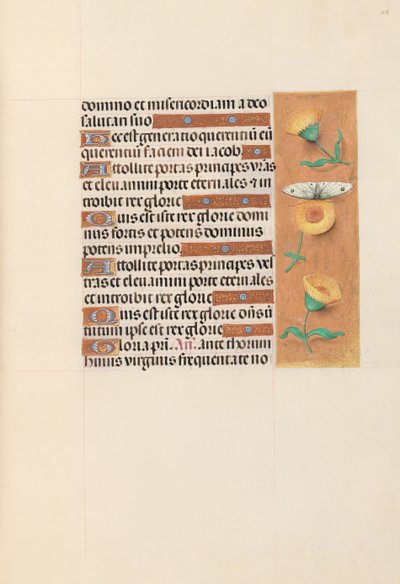 domino et misericordiam a deo
salutari suo
Hec est generatio querentiũ eũ
querentiũ faciem dei iacob
Attollite portas principes vr̃as
et eleuamini porte eternales & in
troibit rex glorie
Quis est iste rex glorie domi
nus fortis et potens dominus
potens in prelio
Attollite portas principes ves
tras et eleuamini porte eternales
et introibit rex glorie
Quis est iste rex glorie dñs ũ
tutum ipse est rex glorie
Gloria pr̃i. Añ. ante thorum
huius virginis frequentate no